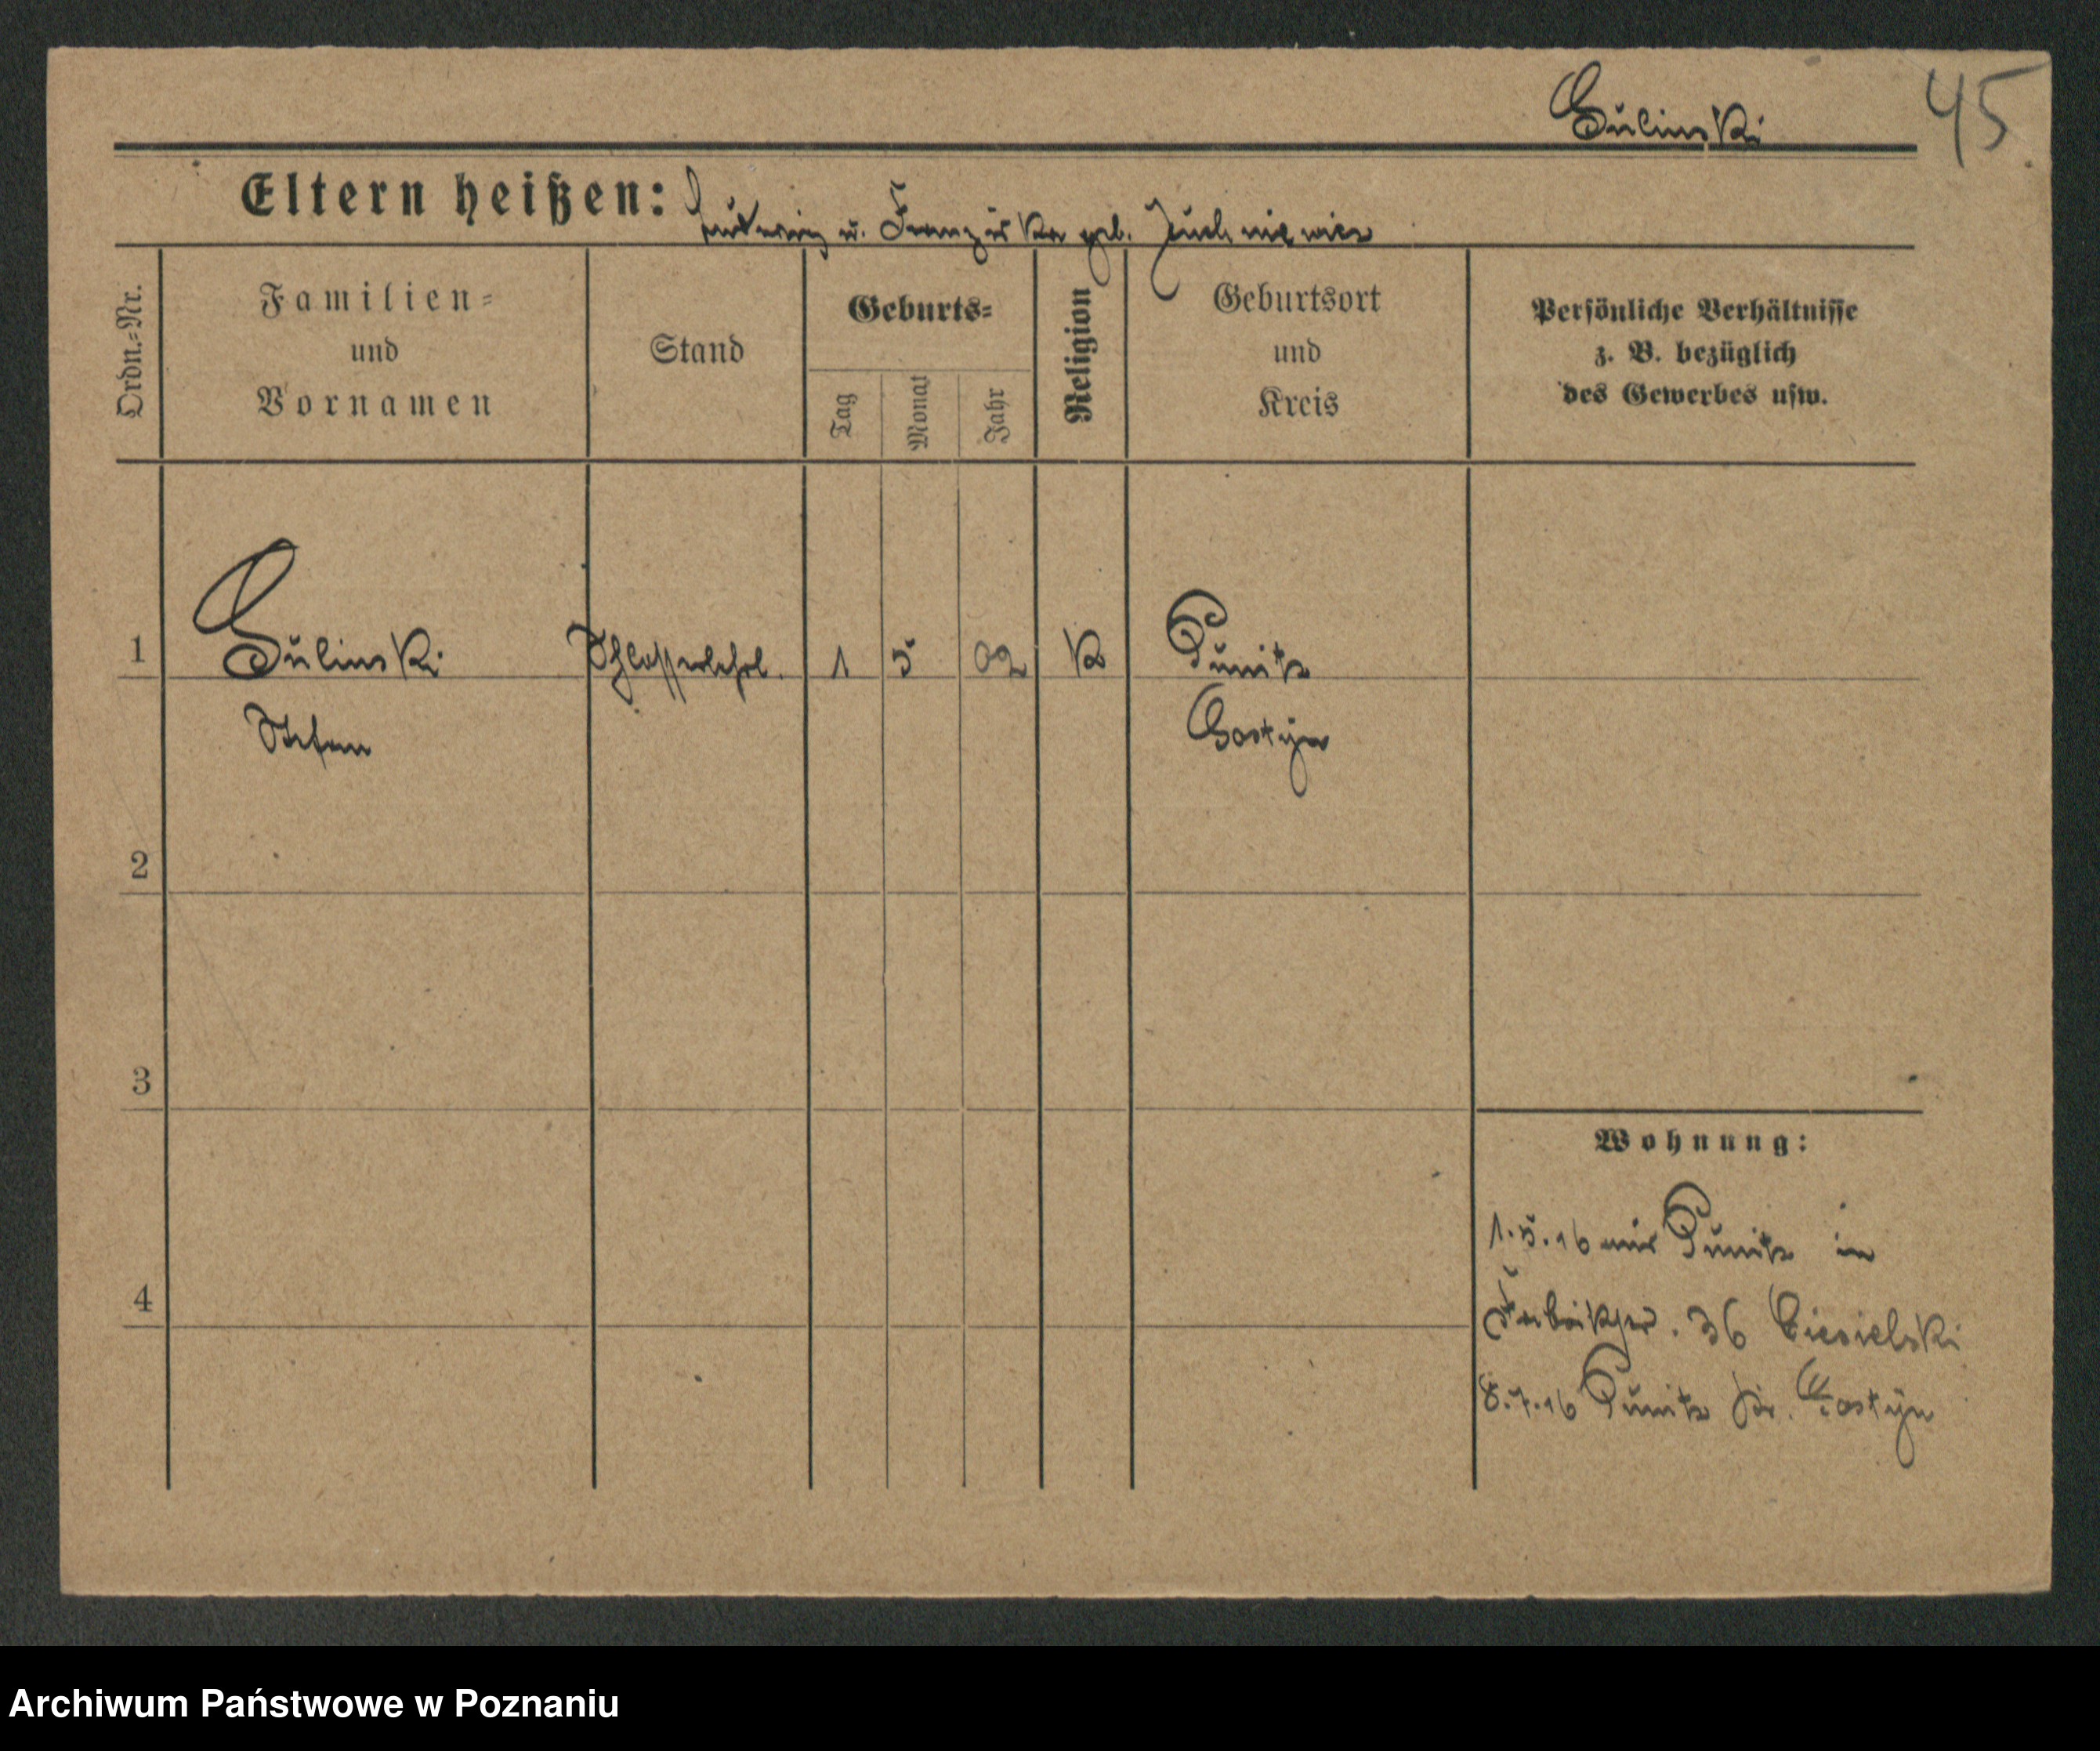 Sulinski 45.
Eltern heißen: Ludwig u. Franziska geb.
Ordn.-Nr.
Familien-
und
Vornamen
Stand
Geburts-
Tag
Monat
Jahr
Religion
Geburtsort
und
Kreis
Persönliche Verhältnisse
z. B. bezüglich
des Gewerbes usw.
1 Sulinski Schlosserlehrl. 1 5 02 K Punitz
Stefan Gostyn
2
3
Wohnung:
4
1.5.16 aus Punitz in
Fabrikstr. 36 Ciesielski
8.7.16 Punitz Kr. Gostyn
Archiwum Państwowe w Poznaniu